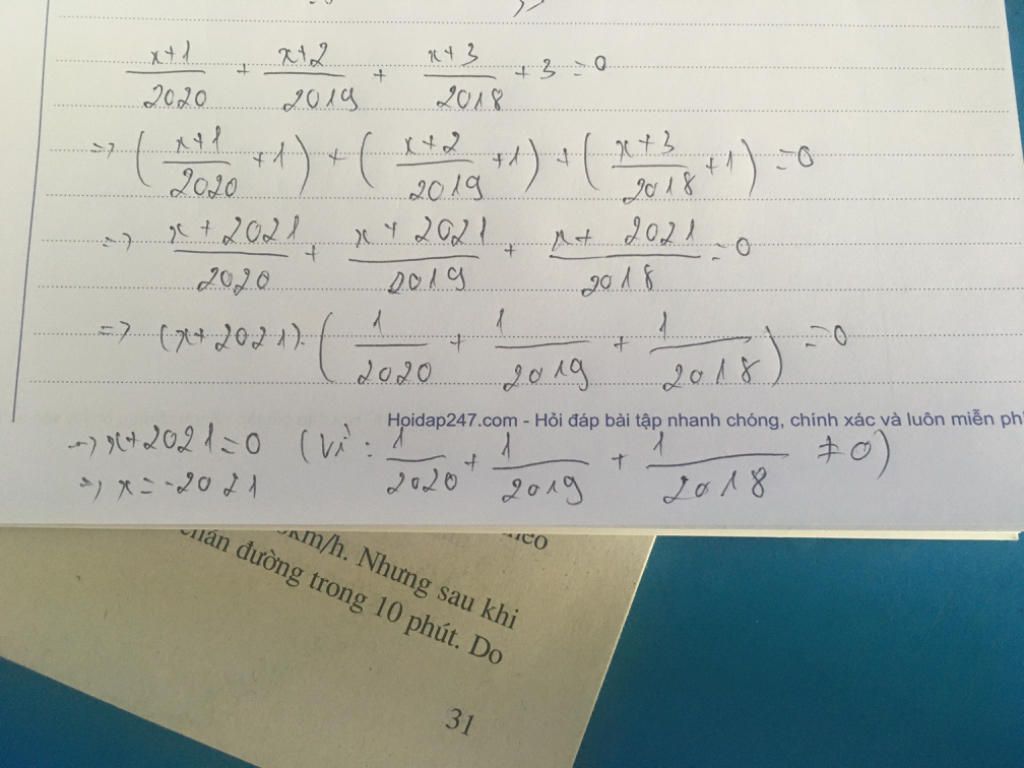 x+1/2020 + x+2/2019 + x+3/2018 + 3 = 0
=> (x+1/2020 + 1) + (x+2/2019 + 1) + (x+3/2018 + 1) = 0
=> x+2021/2020 + x+2021/2019 + x+2021/2018 = 0
=> (x+2021). (1/2020 + 1/2019 + 1/2018) = 0
Hoidap247.com - Hỏi đáp bài tập nhanh chóng, chính xác và luôn miễn ph
=> x+2021=0 (vì: 1/2020 + 1/2019 + 1/2018 ≠ 0)
=> x=-2021
km/h. Nhưng sau khi
đường trong 10 phút. Do
31